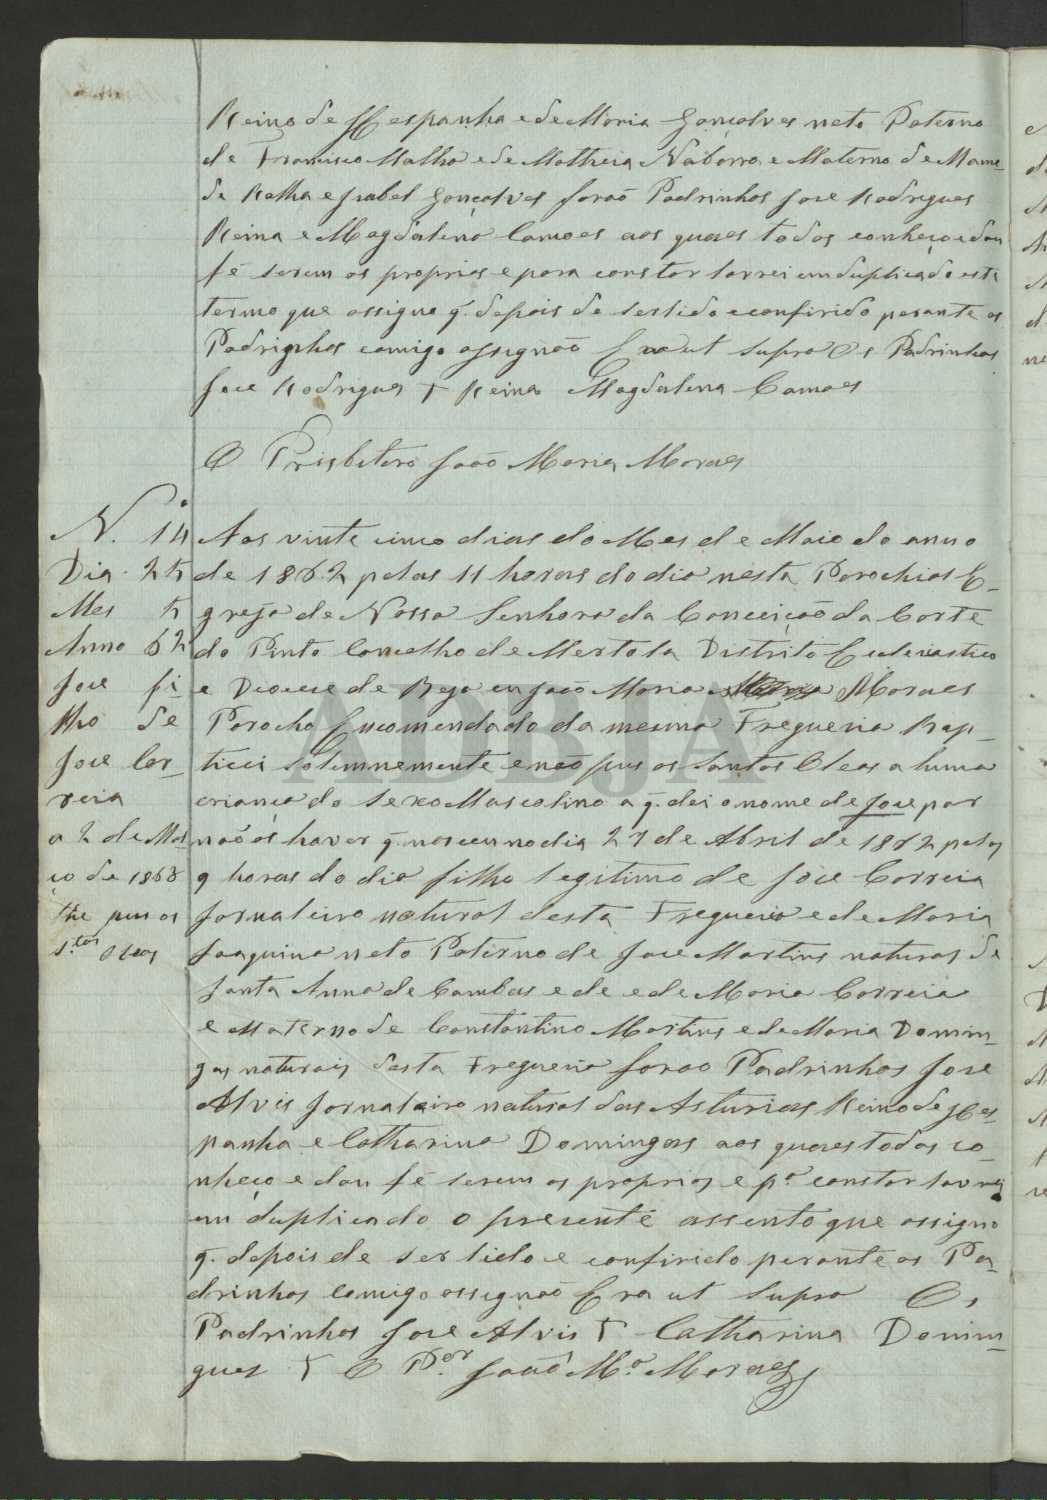 Reino de Hespanha e de Maria Gonçalves neto Paterno
de Francisco Malho e de Matheia Naborro e Materno de Mame-
de Relha e Isabel Gonçalves forão Padrinhos Jose Rodrigues
Reina e Magdalena Camoes aos quaes todos conheço e dou
fé serem os proprios e para constar lavrei em duplicado este
termo que assigno q. depois de ser lido e confirido perante os
Padrinhos comigo assignão Era ut supra Os Padrinhos
Jose Rodrigues + Reina Magdalena Camoes
O Prisbitero João Maria Moraes
N.º 14
Dia 25
Mes 5
Anno 62
Jose fi-
lho de
Jose Cor-
reia
a 2 de Mar
ço de 1868
lhe pus os
S.tos Oleos
Aos vinte cinco dias do Mes de Maio do anno
de 1862 pelas 11 horas do dia nesta Parochial E-
greja de Nossa Senhora da Conceição da Corte
do Pinto Concelho de Mertola Distrito Ecleziastico
e Diocese de Beja eu João Maria Moraes
Parocho Encomendado da mesma Freguesia Bap-
tizei Solemnemente e não pus os Santos Oleos a huma
criança do sexo Mascolino a q. dei o nome de Jose por
não os haver q. nasceu no dia 27 de Abril de 1862 pelas
9 horas do dia filho legitimo de Jose Correia
Jornaleiro natural desta Freguezia e de Maria
Joaquina neto Paterno de Jose Martins natural de
Santa Anna de Cambas e de e de Maria Correia
e Materno de Constantino Martins e de Maria Domin-
gas naturais desta Freguezia forão Padrinhos Jose
Alvis Jornaleiro natural das Asturias Reino de Hes-
panha e Catharina Domingas aos quaes todos co-
nheço e dou fé serem os proprios e p.ª constar lavrei
em duplicado o presente assento que assigno
q. depois de ser lido e confirido perante os Pa-
drinhos comigo assignão Era ut supra Os
Padrinhos Jose Alvis + Catharina Domin-
gues + O P.or João M.ª Moraes
ADBJA